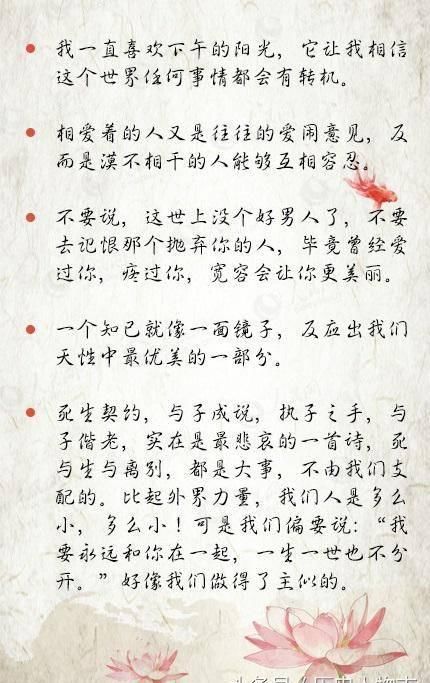 我一直喜欢下午的阳光，它让我相信
这个世界任何事情都会有转机。
相爱着的人又是往往的爱闹意见，反
而是漠不相干的人能够互相容忍。
不要说，这世上没个好男人了，不要
去记恨那个抛弃你的人，毕竟曾经爱
过你，疼过你，宽容会让你更美丽。
一个知已就像一面镜子，反应出我们
天性中最优美的一部分。
死生契约，与子成说，执子之手，与
子偕老，实在是最悲哀的一首诗，死
与生与离别，都是大事，不由我们支
配的。比起外界力量，我们人是多么
小，多么小！可是我们偏要说：“我
要永远和你在一起，一生一世也不分
开。”好像我们做得了主似的。